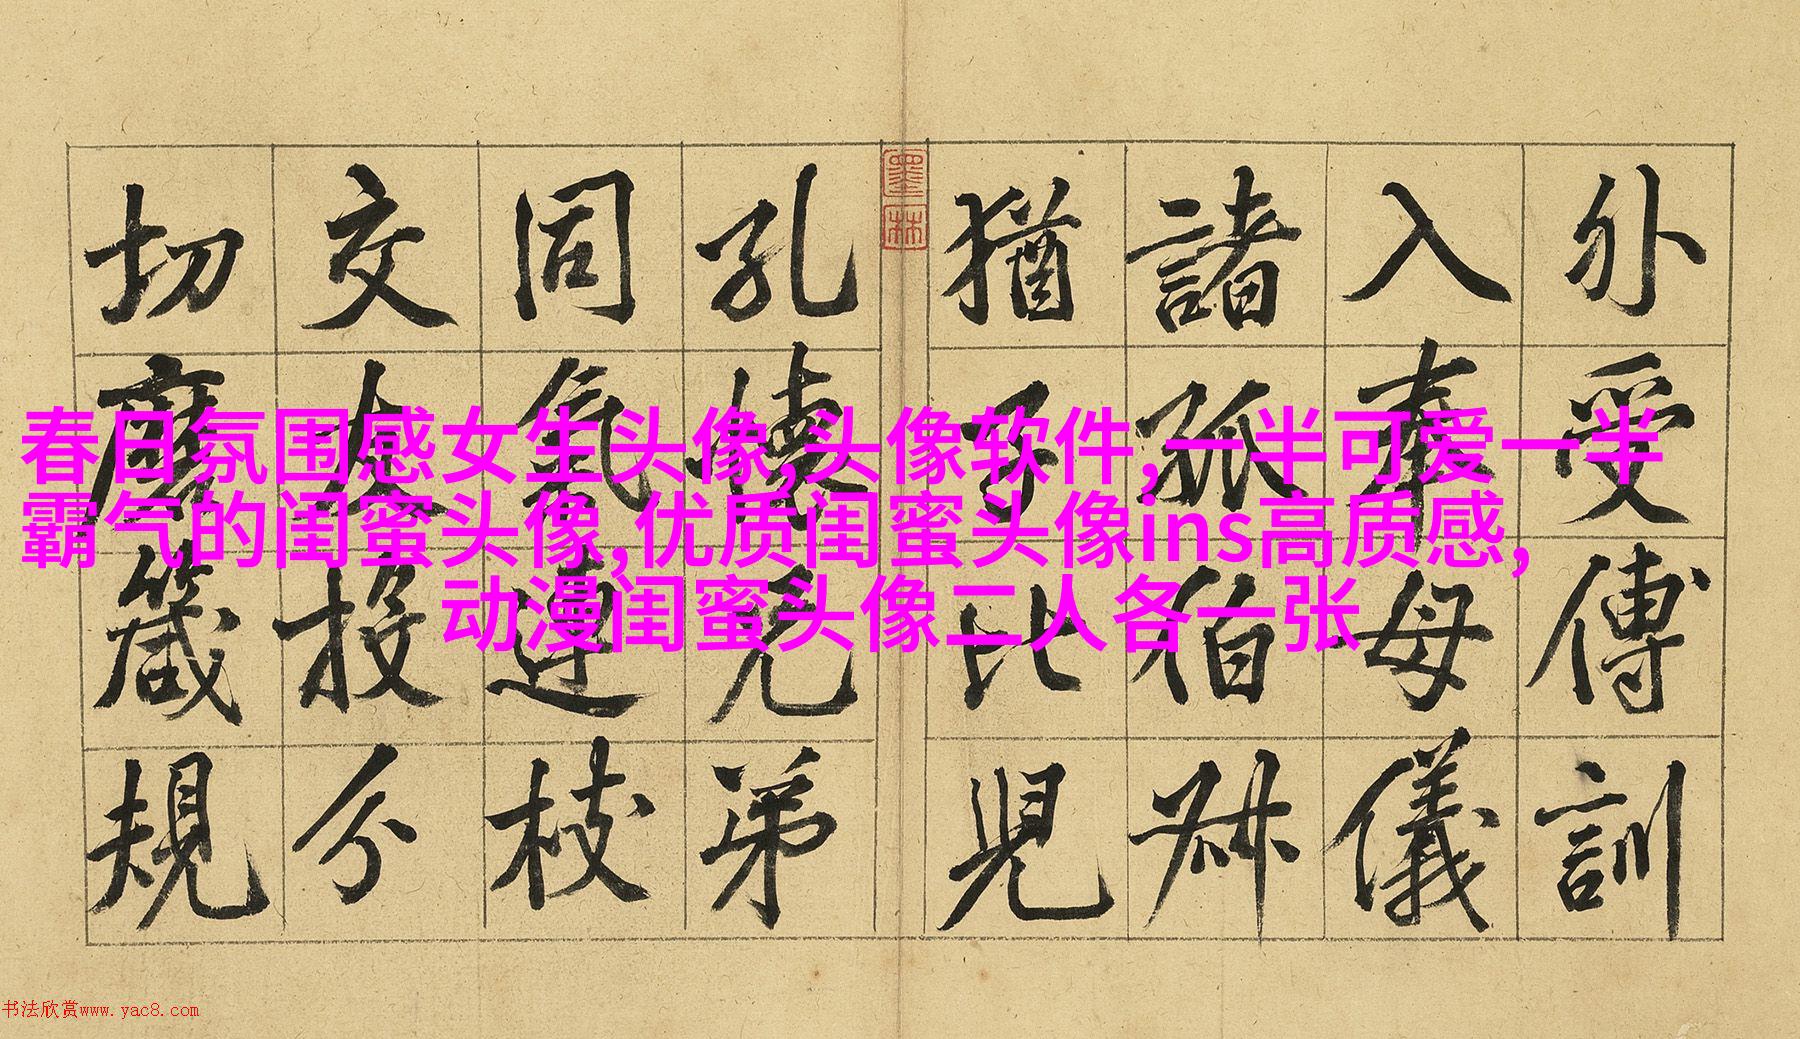 外受傅訓
入奉母儀
諸姑伯叔
猶子比兒
孔懷兄弟
同氣連枝
交友投分
切磨箴規
墨林
春日氛围感女生头像,头像软件,一半可爱一半
霸气的闺蜜头像,优质闺蜜头像ins高质感,
动漫闺蜜头像二人各一张
书法欣赏www.yac8.com